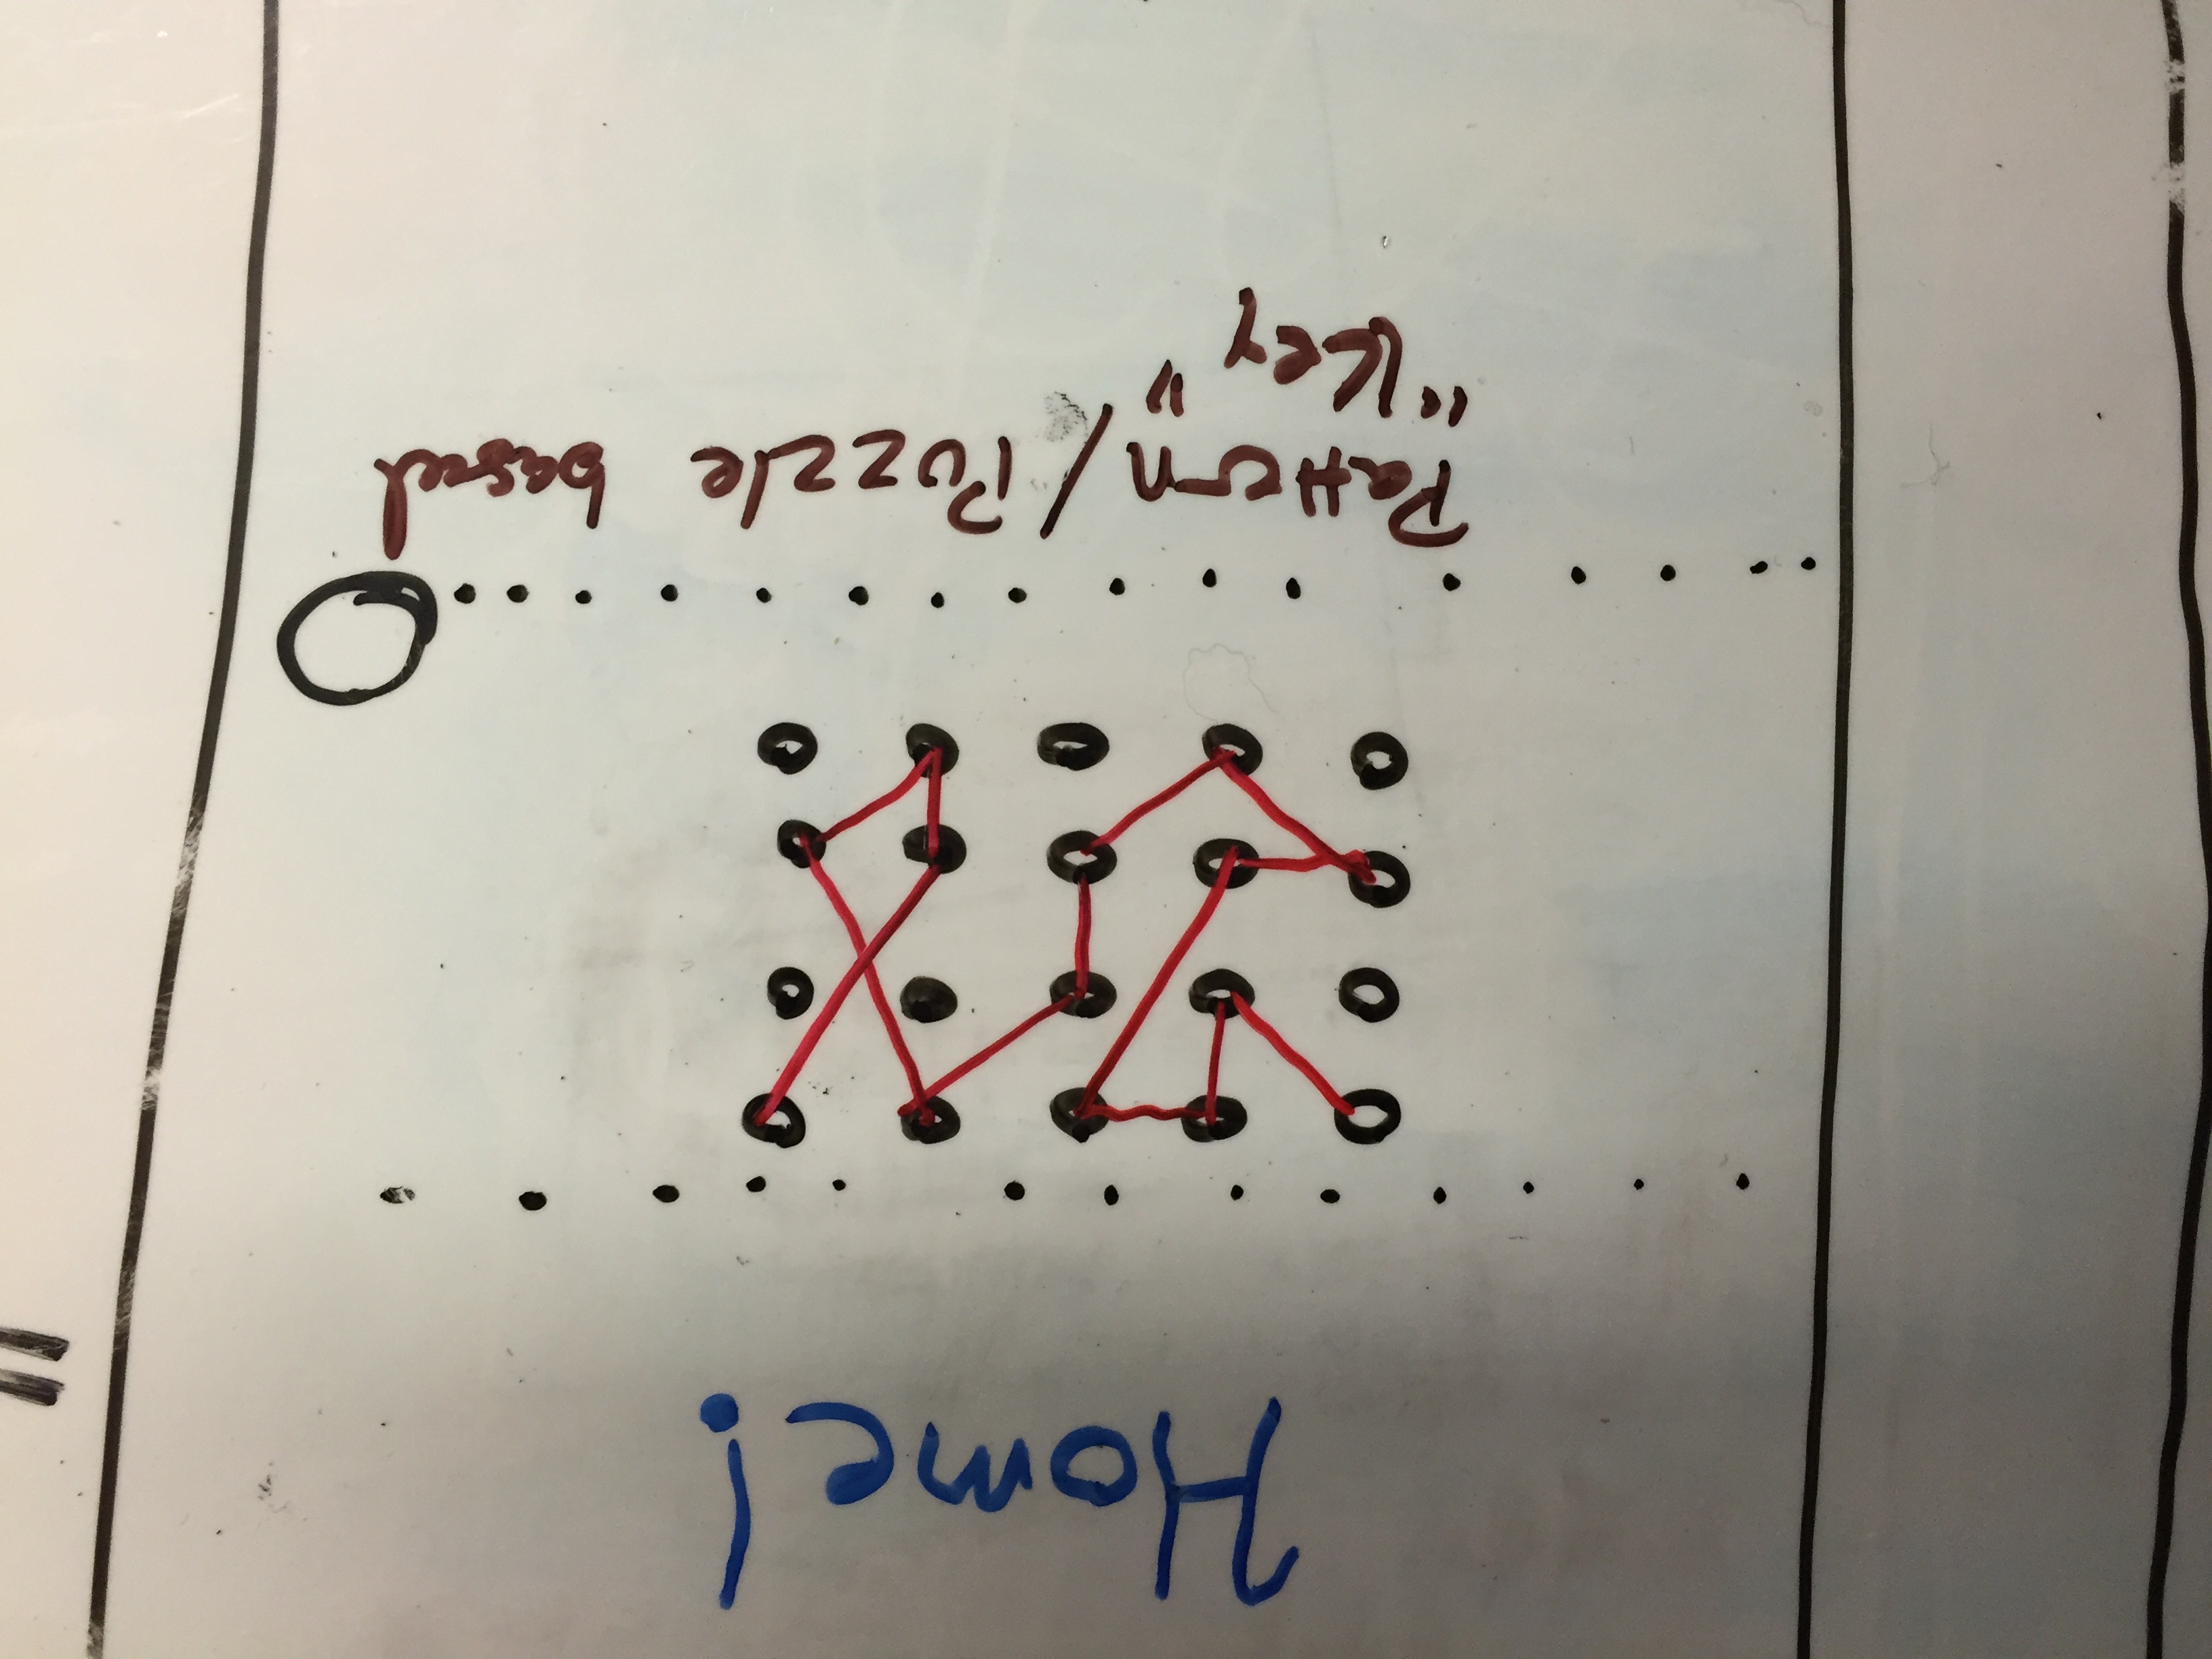 Home!
Pattern/Puzzle based
"Key"